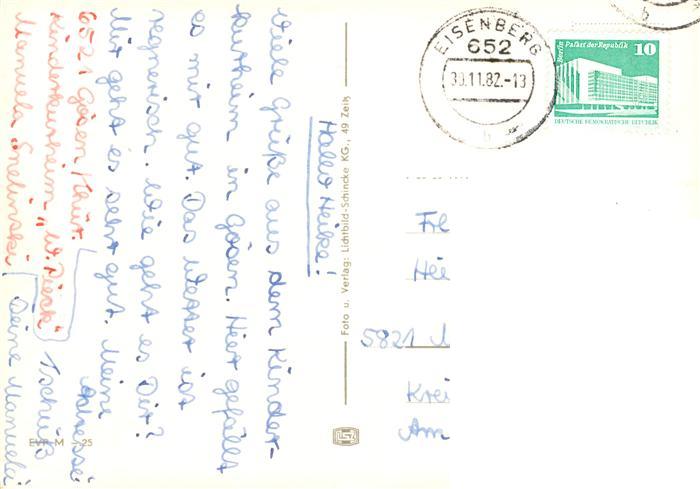 Hallo Heike!
Viele Grüße aus dem Kinder-
kurheim in Gösen. Hier gefällt
es mir gut. Das Wetter ist
regnerisch. Wie geht es Dir?
Mir geht es sehr gut. Meine
Adresse:
6521 Gösen Khrt.
Kinderkurheim „W. Pieck"
Manuela
Tschüß
Deine Manuela
Foto u. Verlag: Lichtbild-Schincke KG., 49 Zeitz
EVP M -.25
EISENBERG
652
30.11.82.-13
b
b
Berlin Palast der Republik 10
DEUTSCHE DEMOKRATISCHE REPUBLIK
5821
Krei
Am